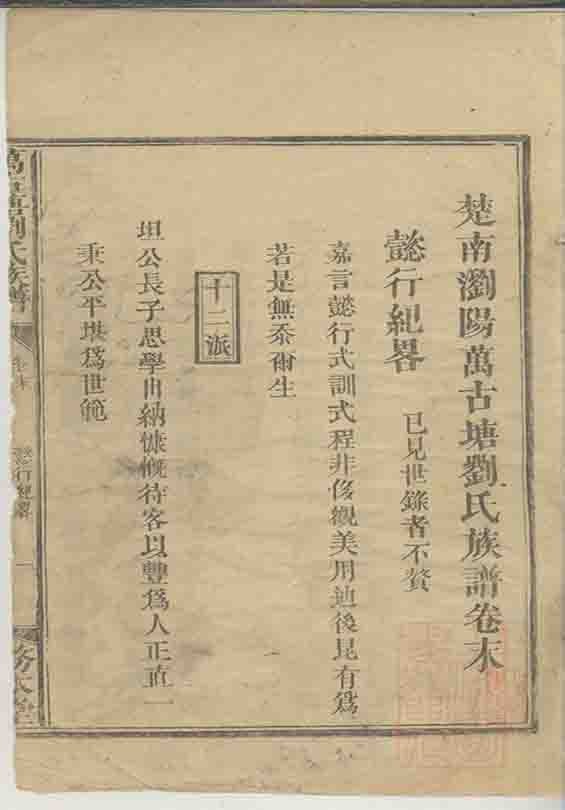 楚南瀏陽萬古塘劉氏族譜卷末
懿行紀畧 已見世錄者不贅
嘉言懿行式訓式程非侈觀美用迪後昆有為
若是無忝爾生
十二派
坦公長子思學出納慷慨待客以豐爲人正直一
秉公平堪爲世範
萬古塘劉氏族譜
卷末
懿行紀畧
一
務本堂